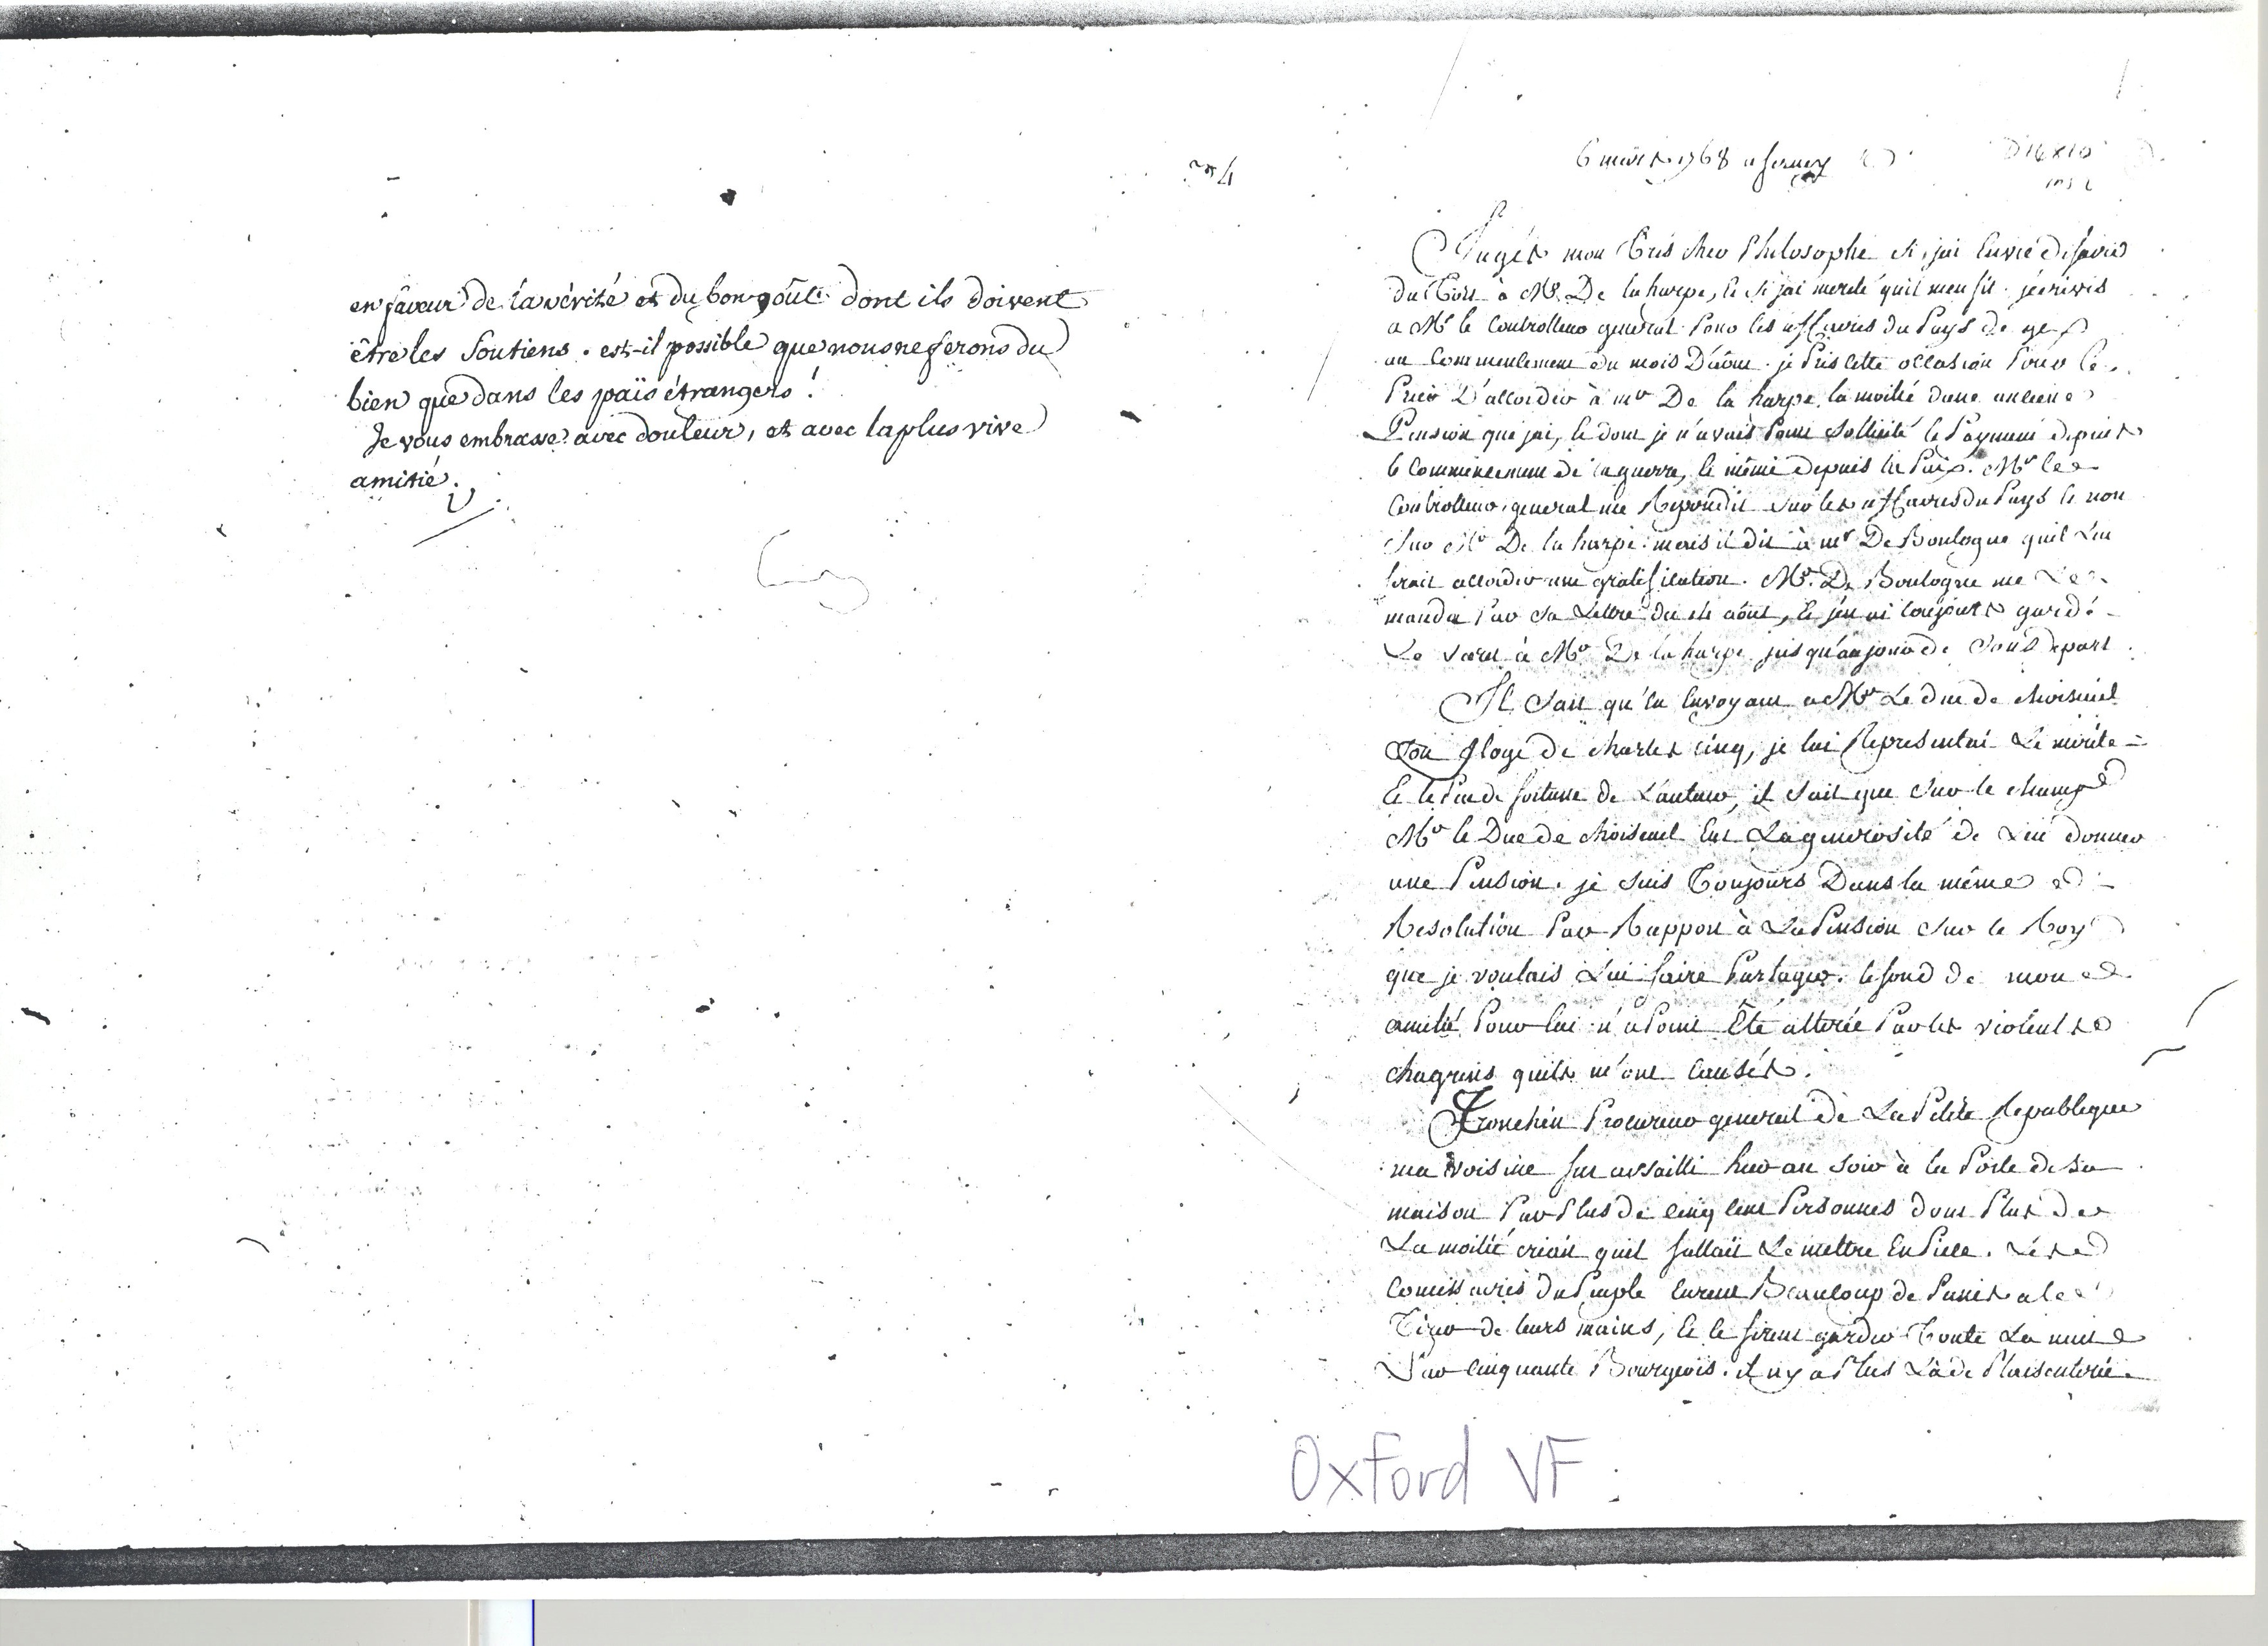 en faveur de la vérité et du bon goût dont ils doivent
être les soutiens. est-il possible que nous ne ferons du
bien que dans les païs étrangers!
Je vous embrasse avec douleur, et avec la plus vive
amitié.
V
4
6 mars 1768 a ferney
Jugés mon tres cher Philosophe si j'ai Envie de faire
du Tort à Mr. De la harpe, Et si j'ai merité quil men fit. jécrivis
a Mr le Controlleur general Pour les affaires du Pays de gex
au Commencement du mois D'aôut. je Pris cette occasion Pour le
Prier D'accorder à mr De la harpe la moitié dune anciene
Pension que jai, Et dont je n'avais Point sollicité le Payment depuis
le Commencement de la guerre, Et même depuis la Paix. Mr le
Controlleur general me Repondit sur les affaires du Pays Et non
sur Mr De la harpe. mais il dit à mr De Boulogne quil Lui
ferait accorder une gratification. Mr. De Boulogne me Le
manda Par sa Lettre du août, Et j'en ai toujours gardé
Le secret à Mr De la harpe jusqu'au jour de son depart.
Il sait qu'En Envoyant a Mr Le duc de choiseuil
son Eloge de charles cinq, je lui Representai Le mérite
Et le Peu de fortune de L'auteur, il sait que sur le champ
Mr le Duc de choiseuil Eut La generosité de Lui donner
une Pension. je suis Toujours Dans la même
Resolution Par Rapport à La Pension sur le Roy
que je voulais Lui faire Partager. le fond de mon
amitié Pour lui n'a Point Eté alterée Par les violents
chagrins quils m'ont Causés.
Tronchin Procureur general de La Petite Republique
ma voisine fut assailli hier au soir à la Porte de sa
maison Par Plus de cinq Cent Personnes dont Plus de
La moitié criait quil fallait Le mettre En Piece. Les
Comissaires du Peuple Eurent Beaucoup de Peines a le
Tirer de leurs mains, Et le firent garder Toute La nuit
Par cinquante Bourgeois. il n'y a Plus Là de Plaisanterie
Oxford VF.